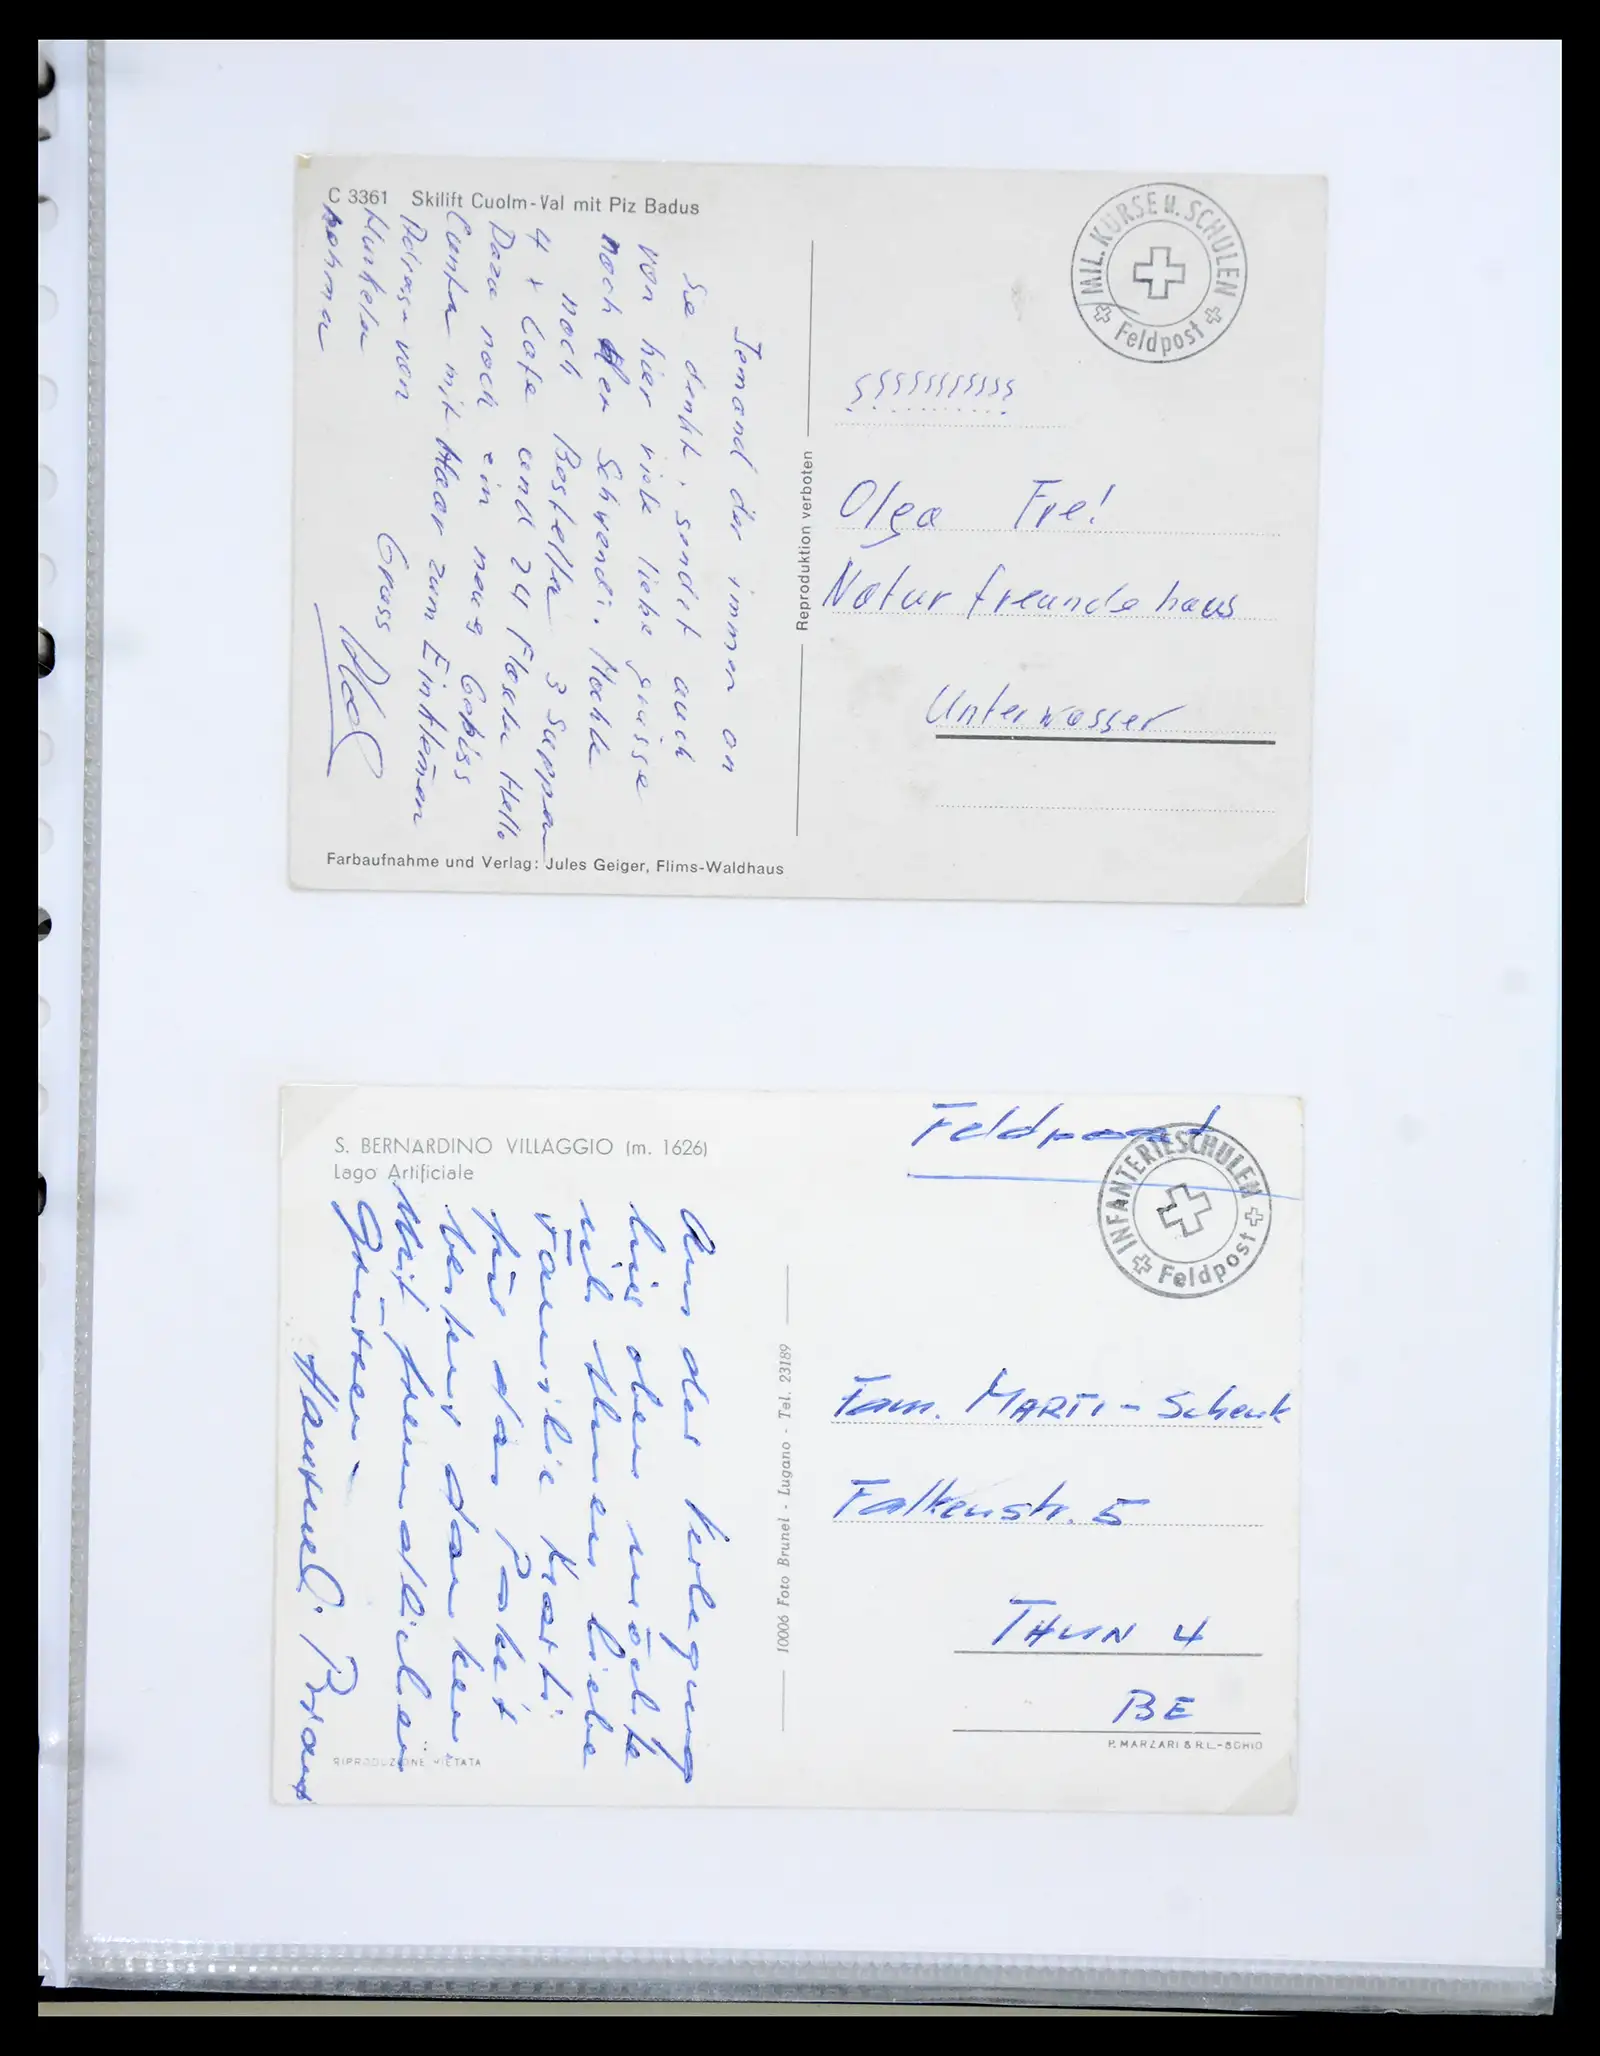 C 3361 Skilift Cuolm-Val mit Piz Badus
Jemand der immer an
Sie denkt, sendet auch
von hier viele liebe grüsse
noch der Schwendi. Möchte
noch Bestella 3 Suppa
4 x Cafe und 24 Flascha Hell.
Daza noch ein neus Gebiss
mit Haar zum Einkämen
Adrass von
Kunkela
nehma
Gruss
Farbaufnahme und Verlag: Jules Geiger, Flims-Waldhaus
Reproduktion verboten
MIL. KURSE u. SCHULEN
Feldpost
Olga Frei
Naturfreundehaus
Unterwasser
S. BERNARDINO VILLAGGIO (m. 1626)
Lago Artificiale
Aus der Verlegung
hier oben möchte
ich Ihnen liebe
Familie Marti
für das Paket
bestens danken.
Mit freundlichen
Grüssen
RIPRODUZIONE VIETATA
10006 Foto Brunel - Lugano - Tel. 23189
Feldpost
INFANTERIESCHULEN
Feldpost
Fam. MARTI - Schenk
Falkenstr. 5
THUN 4
BE
P. MARZARI S.R.L. - SCHIO